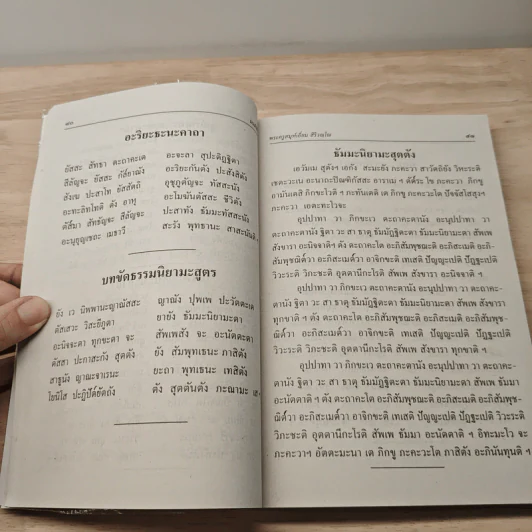 อะริยะธะนะคาถา
ยัสสะ สัทธา ตะถาคะเต อะจะลา สุปะติฏฐิตา
สีลัญจะ ยัสสะ กัล๎ยาณัง อะริยะกันตัง ปะสังสิตัง
สังเฆ ปะสาโท ยัสสัตถิ อุชุภูตัญจะ ทัสสะนัง
อะทะลิทโทติ ตัง อาหุ อะโมฆันตัสสะ ชีวิตัง
ตัส๎มา สัทธัญจะ สีลัญจะ ปะสาทัง ธัมมะทัสสะนัง
อะนุยุญเชถะ เมธาวี สะรัง พุทธานะ สาสะนันติ
บทขัดธรรมนิยามะสูตร
ยัง เว นิพพานะญาณัสสะ ญาณัง ปุพเพ ปะวัตตะเต
ตัสเสวะ วิสะยีภูตา ยายัง ธัมมะนิยามะตา
อะนิจจะตา ทุกขะตา จะ สัพเพสัง จะ อะนัตตะตา
ตัสสา ปะกาสะกัง สุตตัง ยัง สัมพุทเธนะ ภาสิตัง
สาธูนัง ญาณะจาเรนะ ยะถา พุทเธนะ เทสิตัง
โยนิโส ปะฏิปัต๎ยัตถัง ตัง สุตตันตัง ภะณามะ เส
ธัมมะนิยามะสุตตัง
เอวัมเม สุตังฯ เอกัง สะมะยัง ภะคะวา สาวัตถิยัง วิหะระติ
เชตะวะเน อะนาถะปิณฑิกัสสะ อาราเม ฯ ตัต๎ระ โข ภะคะวา ภิกขู
อามันเตสิ ภิกขะโวติ ฯ ภะทันเตติ เต ภิกขู ภะคะวะโต ปัจจัสโสสุงฯ
ภะคะวา เอตะทะโวจะ
อุปปาทา วา ภิกขะเว ตะถาคะตานัง อะนุปปาทา วา
ตะถาคะตานัง ฐิตา วะ สา ธาตุ ธัมมัฏฐิตะตา ธัมมะนิยามะตา สัพเพ
สังขารา อะนิจจาติ ฯ ตัง ตะถาคะโต อะภิสัมพุชฌะติ อะภิสะเมติ อะภิ-
สัมพุชฌิต๎วา อะภิสะเมต๎วา อาจิกขะติ เทเสติ ปัญญะเปติ ปัฏฐะเปติ
วิวะระติ วิภะชะติ อุตตานีกะโรติ สัพเพ สังขารา อะนิจจาติ ฯ
อุปปาทา วา ภิกขะเว ตะถาคะตานัง อะนุปปาทา วา ตะถาคะ-
ตานัง ฐิตา วะ สา ธาตุ ธัมมัฏฐิตะตา ธัมมะนิยามะตา สัพเพ สังขารา
ทุกขาติ ฯ ตัง ตะถาคะโต อะภิสัมพุชฌะติ อะภิสะเมติ อะภิสัมพุชฌิต๎วา
อะภิสะเมต๎วา อาจิกขะติ เทเสติ ปัญญะเปติ ปัฏฐะเปติ
วิวะระติ วิภะชะติ อุตตานีกะโรติ สัพเพ สังขารา ทุกขาติ ฯ
อุปปาทา วา ภิกขะเว ตะถาคะตานัง อะนุปปาทา วา ตะถาคะ-
ตานัง ฐิตา วะ สา ธาตุ ธัมมัฏฐิตะตา ธัมมะนิยามะตา สัพเพ ธัมมา
อะนัตตาติ ฯ ตัง ตะถาคะโต อะภิสัมพุชฌะติ อะภิสะเมติ อะภิสัมพุช-
ฌิต๎วา อะภิสะเมต๎วา อาจิกขะติ เทเสติ ปัญญะเปติ ปัฏฐะเปติ วิวะระติ
วิภะชะติ อุตตานีกะโรติ สัพเพ ธัมมา อะนัตตาติ ฯ อิทะมะโว จะ
ภะคะวาฯ อัตตะมะนา เต ภิกขู ภะคะวะโต ภาสิตัง อะภินันทุนติ ฯ